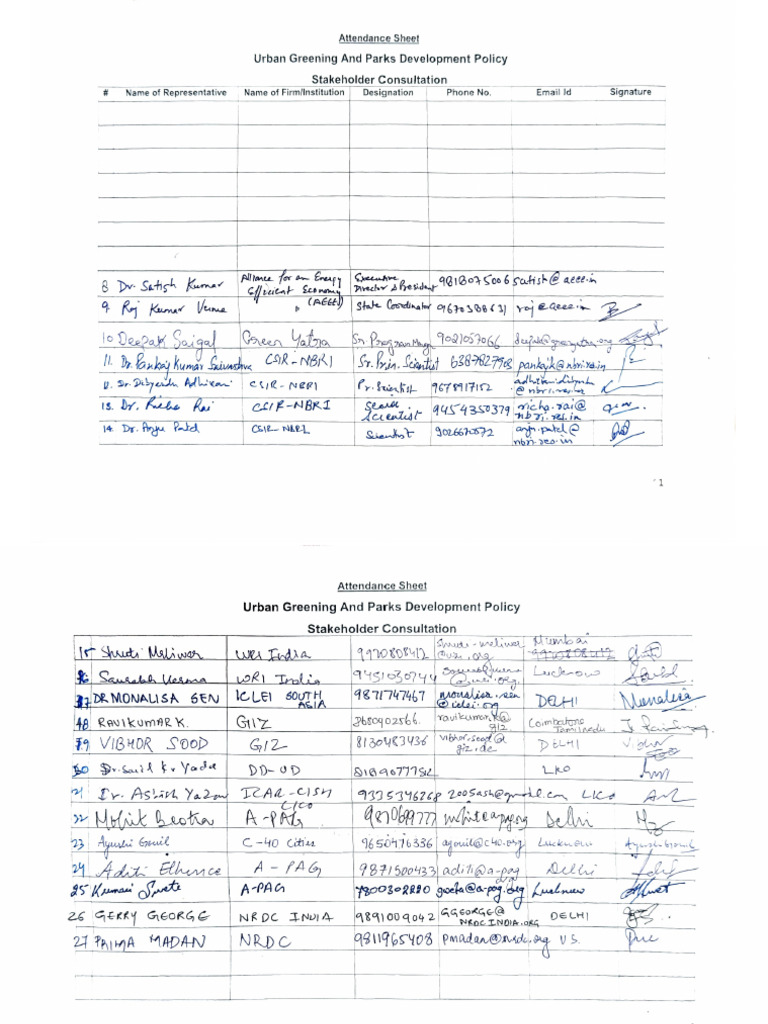 Attendance Sheet
Urban Greening And Parks Development Policy
Stakeholder Consultation
# Name of Representative Name of Firm/Institution Designation Phone No. Email Id Signature
8 Dr. Satish Kumar Alliance for an Energy Efficient Economy (AEEE) Executive Director & President 9818075006 satish@aeee.in
9. Raj Kumar Verma " State Coordinator 9670388631 raj@aeee.in
10. Deepak Saigal Green Yatra Sr. Program 9021057066
11. Dr. Pankaj Kumar Srivastva CSIR-NBRI Sr. Prin. Scientist 6387827903 pankajk@nbri.res.in
Dr. Dibyendu Adhikari CSIR-NBRI Pr. Scientist 9678917152 @nbri.res.in
13. Dr. Richa Rai CSIR-NBRI Scientist 9454350379 richa.rai@nbri.res.in
14. Dr. Anju Patel CSIR-NBRI Scientist 9026670572 anju.patel@nbri.res.in
1
Attendance Sheet
Urban Greening And Parks Development Policy
Stakeholder Consultation
15 Shruti WRI India 9970808412 Mumbai
16 Saurabh Verma WRI India 9451030744 Lucknow
17 DR MONALISA SEN ICLEI SOUTH ASIA 9871747467 monalisa.sen@iclei.org DELHI Monalisa
18 RAVIKUMAR K. GIZ 3680902566 ravikumar.k@giz Coimbatore Tamilnadu
19 VIBHOR SOOD GIZ 8130483436 vibhor.sood@giz.de DELHI
20 DD-UD LKO
21 Dr. Ashish Yadav ICAR-CISH LKO 9335346268 2005ash@gmail.com LKO
22 Mohit Beotra A-PAG 9810699777 mohit@a-pag.org Delhi
23 Ayushi C-40 Cities 9650476336 Lucknow
24 Aditi Elhence A-PAG 9871500433 aditi@a-pag Delhi
25 Kumari Sweta A-PAG 7800302220 Lucknow
26 GERRY GEORGE NRDC INDIA 9891009042 GGEORGE@NRDCINDIA.ORG DELHI
27 PRIMA MADAN NRDC 9811965408 pmadan@nrdc.org U.S.